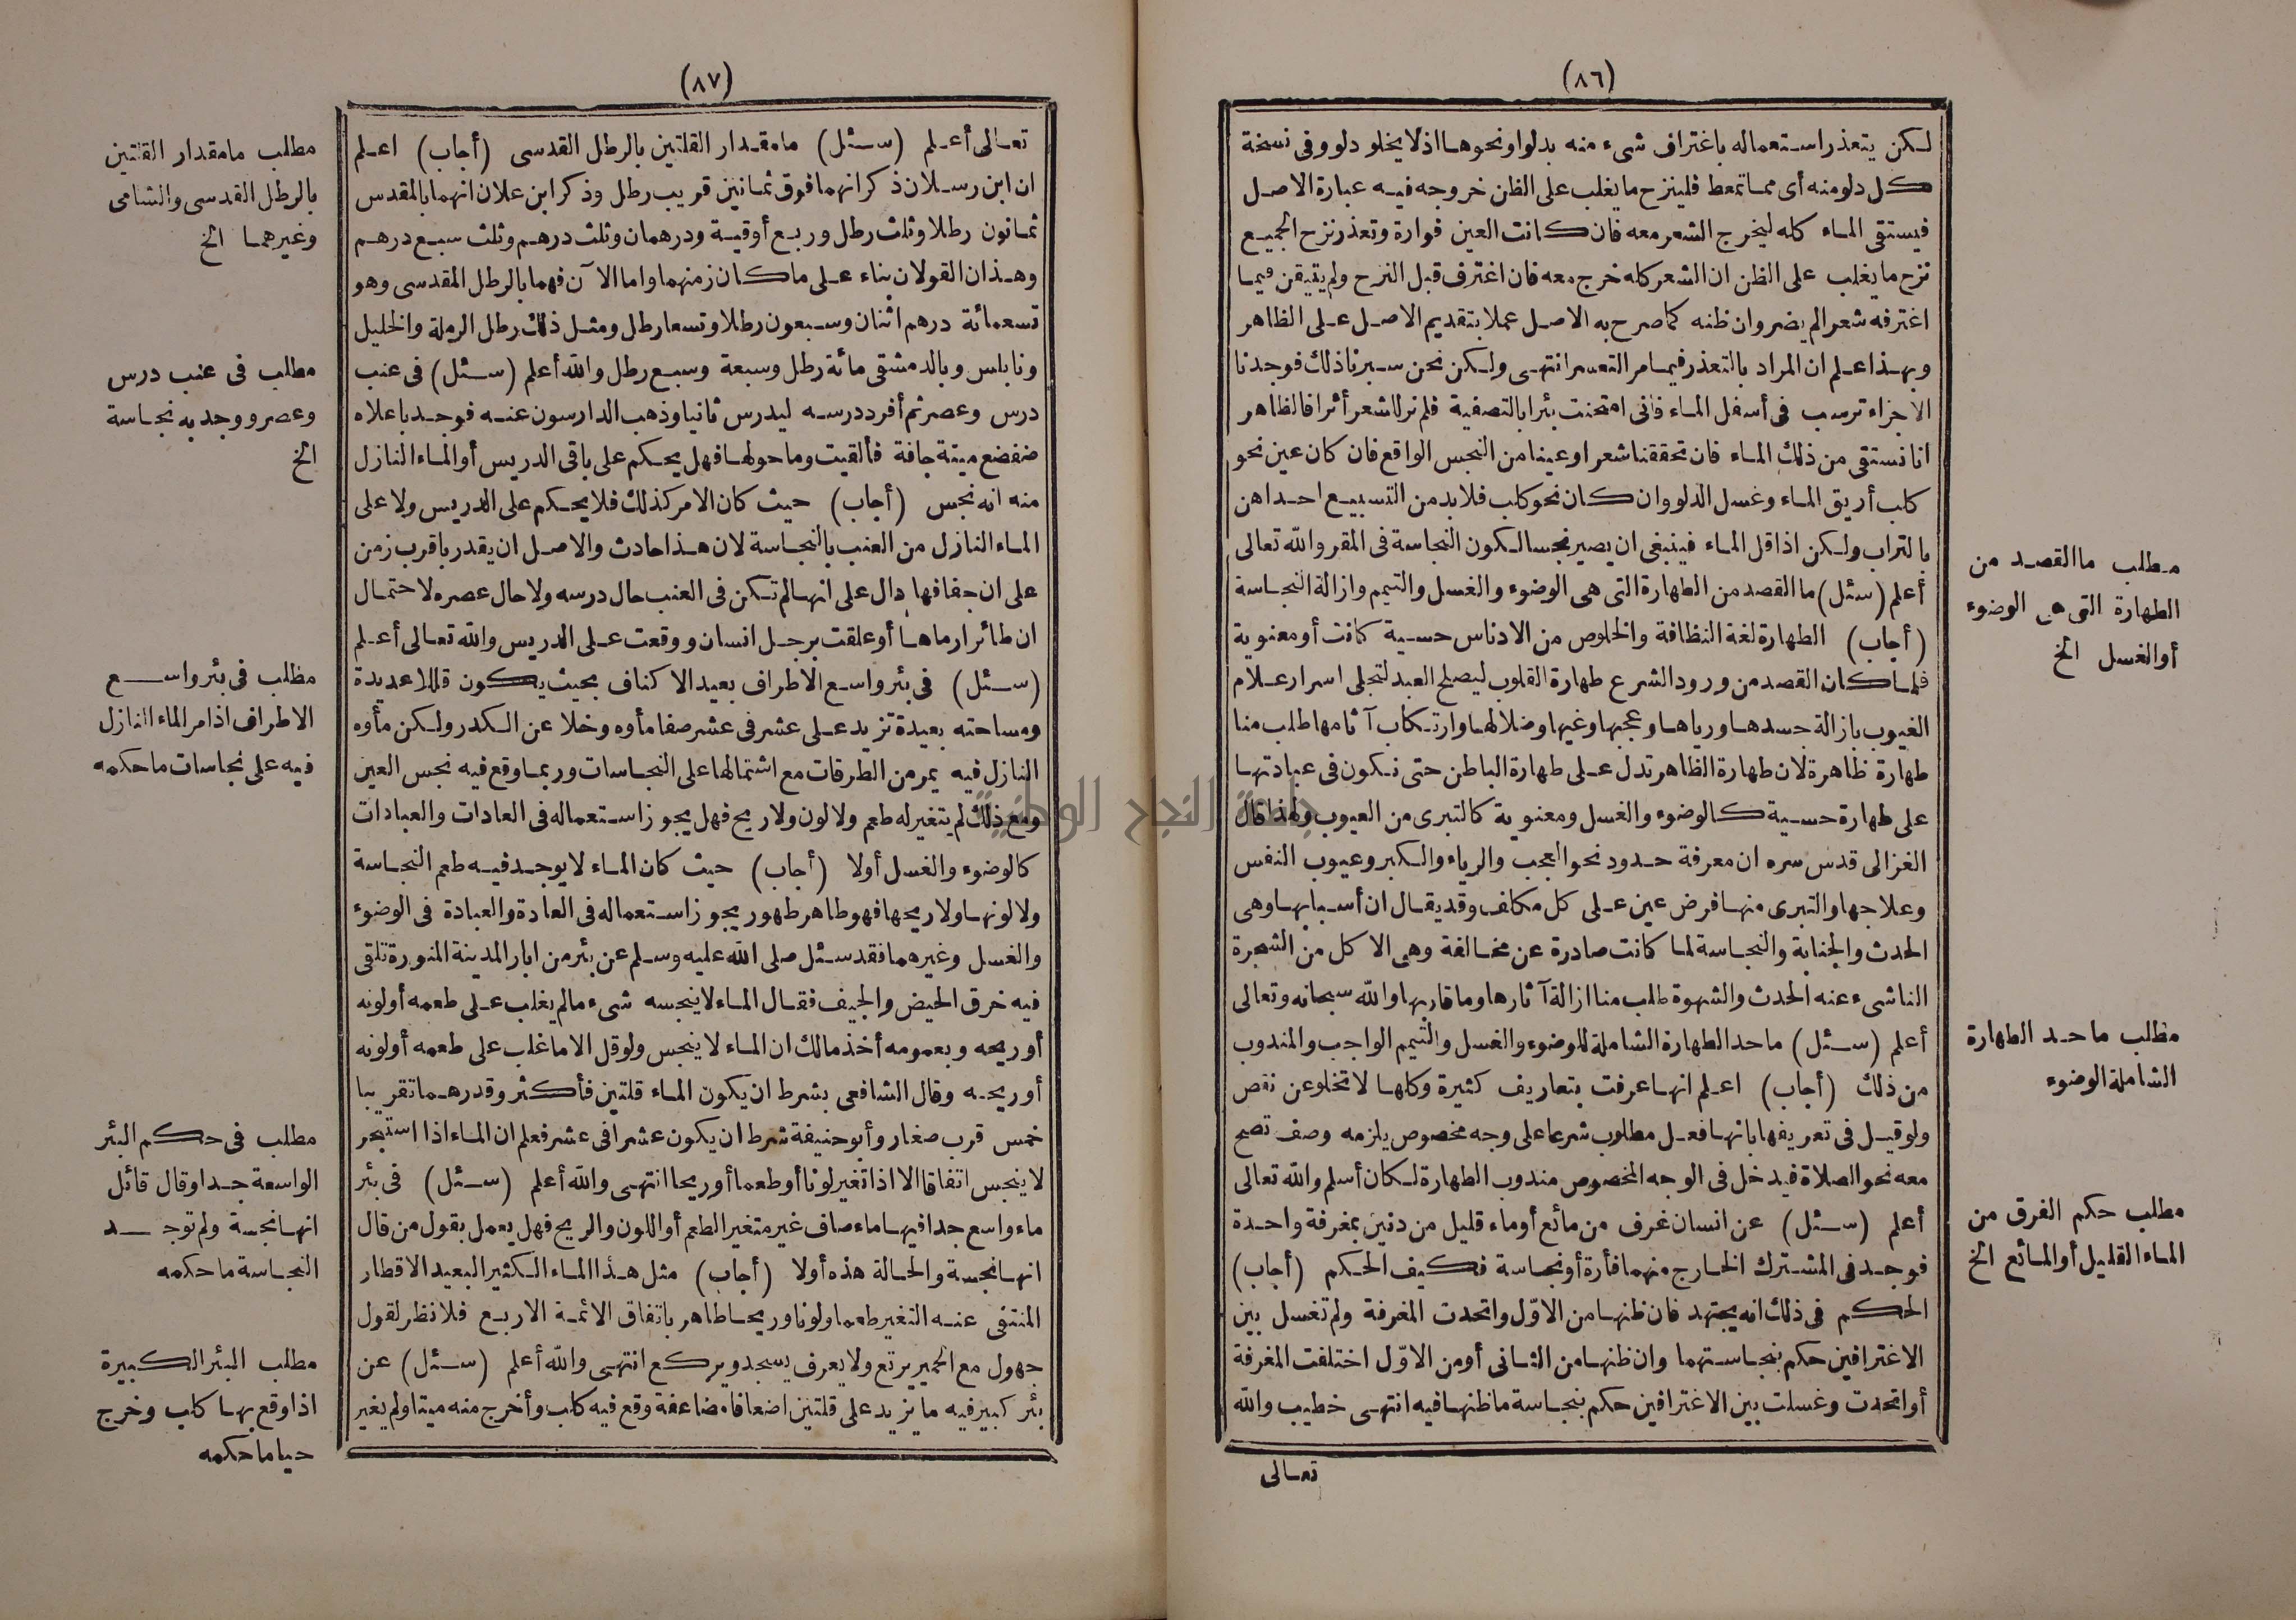 (٨٦)
لكن يتعذر استعماله باغتراف شىء منه بدلو او نحوها اذ لا يخلو دلو وفى نسخة
كل دلو منه أى مما تمعط فلينزح ما يغلب على الظن خروجه فيه عبارة الاصل
فيستقى الماء كله ليخرج الشعر معه فان كانت العين فوارة وتعذر نزح الجميع
نزح ما يغلب على الظن ان الشعر كله خرج معه فان اغترف قبل النزح ولم يتيقن فيما
اغترفه شعرا لم يضر وان ظنه كما صرح به الاصل عملا بتقديم الاصل على الظاهر
وبهذا علم ان المراد بالتعذر فيما مر التعسر انتهى ولكن نحن سبرنا ذلك فوجدنا
الاجزاء ترسب فى أسفل الماء فانى امتحنت بئرا بالتصفية فلم نر للشعر أثرا فالظاهر
انا نستقى من ذلك الماء فان تحققنا شعرا وعينا من النجس الواقع فان كان عين نحو
كلب أريق الماء وغسل الدلو وان كان نحو كلب فلا بد من التسبيع احداهن
بالتراب ولكن اذا قل الماء فينبغى ان يصير نجسا لكون النجاسة فى المقر والله تعالى
أعلم (سئل) ما القصد من الطهارة التى هى الوضوء والغسل والتيمم وازالة النجاسة
(أجاب) الطهارة لغة النظافة والخلوص من الادناس حسية كانت أو معنوية
فلما كان القصد من ورود الشرع طهارة القلوب ليصلح العبد لتجلى اسرار علام
الغيوب بازالة حسدها ورياها وعجبها وغيها وضلالها وارتكاب آثامها طلب منا
طهارة ظاهرة لان طهارة الظاهر تدل على طهارة الباطن حتى نكون فى عبادتها
على طهارة حسية كالوضوء والغسل ومعنوية كالتبرى من العيوب ولهذا قال
الغزالى قدس سره ان معرفة حدود نحو العجب والرياء والكبر وعيوب النفس
وعلاجها والتبرى منها فرض عين على كل مكلف وقد يقال ان أسبابها وهى
الحدث والجنابة والنجاسة لما كانت صادرة عن مخالفة وهى الاكل من الشجرة
الناشىء عنه الحدث والشهوة طلب منا ازالة آثارها وما قاربها والله سبحانه وتعالى
أعلم (سئل) ما حد الطهارة الشاملة للوضوء والغسل والتيمم الواجب والمندوب
من ذلك (أجاب) اعلم انها عرفت بتعاريف كثيرة وكلها لا تخلو عن نقص
ولو قيل فى تعريفها بانها فعل مطلوب شرعا على وجه مخصوص يلزمه وصف تصح
معه نحو الصلاة فيدخل فى الوجه المخصوص مندوب الطهارة لكان أسلم والله تعالى
أعلم (سئل) عن انسان غرف من مائع أو ماء قليل من دنين بمغرفة واحدة
فوجد فى المشترك الخارج منهما فأرة أو نجاسة فكيف الحكم (أجاب)
الحكم فى ذلك انه يجتهد فان ظنها من الاوّل واتحدت المغرفة ولم تغسل بين
الاغترافين حكم بنجاستهما وان ظنها من الثانى أو من الاوّل اختلفت المغرفة
أو اتحدت وغسلت بين الاغترافين حكم بنجاسة ما ظنها فيه انتهى خطيب والله
تعالى
مطلب ما القصد من
الطهارة التى هى الوضوء
أو الغسل الخ
مطلب ما حد الطهارة
الشاملة الوضوء
مطلب حكم الغرق من
الماء القليل أو المائع الخ
(٨٧)
تعالى أعلم (سئل) ما مقدار القلتين بالرطل القدسى (أجاب) اعلم
ان ابن رسلان ذكر انهما فوق ثمانين قريب رطل وذكر ابن علان انهما بالمقدس
ثمانون رطلا وثلث رطل وربع أوقية ودرهمان وثلث درهم وثلث سبع درهم
وهذان القولان بناء على ما كان زمنهما واما الآن فهما بالرطل المقدسى وهو
تسعمائة درهم اثنان وسبعون رطلا وتسعا رطل ومثل ذلك رطل الرملة والخليل
ونابلس وبالدمشقى مائة رطل وسبعة وسبع رطل والله أعلم (سئل) فى عنب
درس وعصر ثم أفرد درسه ليدرس ثانيا وذهب الدارسون عنه فوجد باعلاه
ضفضع ميتة جافة فألقيت وما حولها فهل يحكم على باقى الدريس أو الماء النازل
منه انه نجس (أجاب) حيث كان الامر كذلك فلا يحكم على الدريس ولا على
الماء النازل من العنب بالنجاسة لان هذا حادث والاصل ان يقدر باقرب زمن
على ان جفافها دال على انها لم تكن فى العنب حال درسه ولا حال عصره لاحتمال
ان طائرا رماها أو علقت برجل انسان ووقعت على الدريس والله تعالى أعلم
(سئل) فى بئر واسع الاطراف بعيد الاكناف بحيث يكون قللا عديدة
ومساحته بعيدة تزيد على عشر فى عشر صفا مأوه وخلا عن الكدر ولكن مأوه
النازل فيه يمر من الطرقات مع اشتمالها على النجاسات وربما وقع فيه نجس العين
ومع ذلك لم يتغير له طعم ولا لون ولا ريح فهل يجوز استعماله فى العادات والعبادات
كالوضوء والغسل أولا (أجاب) حيث كان الماء لا يوجد فيه طعم النجاسة
ولا لونها ولا ريحها فهو طاهر طهور يجوز استعماله فى العادة والعبادة فى الوضوء
والغسل وغيرهما فقد سئل صلى الله عليه وسلم عن بئر من ابار المدينة المنورة تلقى
فيه خرق الحيض والجيف فقال الماء لا ينجسه شىء ما لم يغلب على طعمه أو لونه
أو ريحه وبعمومه أخذ مالك ان الماء لا ينجس ولو قل الا ما غلب على طعمه أو لونه
أو ريحه وقال الشافعى بشرط ان يكون الماء قلتين فأكثر وقدرهما تقريبا
خمس قرب صغار وأبو حنيفة شرط ان يكون عشرا فى عشر فعلم ان الماء اذا استبحر
لا ينجس اتفاقا الا اذا تغير لونا أو طعما أو ريحا انتهى والله أعلم (سئل) فى بئر
ماء واسع جدا فيها ماء صاف غير متغير الطعم أو اللون والريح فهل يعمل بقول من قال
انها نجسة والحالة هذه أولا (أجاب) مثل هذا الماء الكثير البعيد الاقطار
المنتفى عنه التغير طعما ولونا وريحا طاهر باتفاق الائمة الاربع فلا نظر لقول
جهول مع الحمير يرتع ولا يعرف يسجد ويركع انتهى والله أعلم (سئل) عن
بئر كبير فيه ما يزيد على قلتين اضعافا مضاعفة وقع فيه كلب وأخرج منه ميتا ولم يغير
مطلب ما مقدار القلتين
بالرطل القدسى والشامى
وغيرهما الخ
مطلب فى عنب درس
وعصر ووجد به نجاسة
الخ
مطلب فى بئر واسع
الاطراف اذا مر الماء النازل
فيه على نجاسات ما حكمه
مطلب فى حكم البئر
الواسعة جدا وقال قائل
انها نجسة ولم توجد
النجاسة ما حكمه
مطلب البئر الكبيرة
اذا وقع بها كلب وخرج
حيا ما حكمه
جامعة النجاح الوطنية